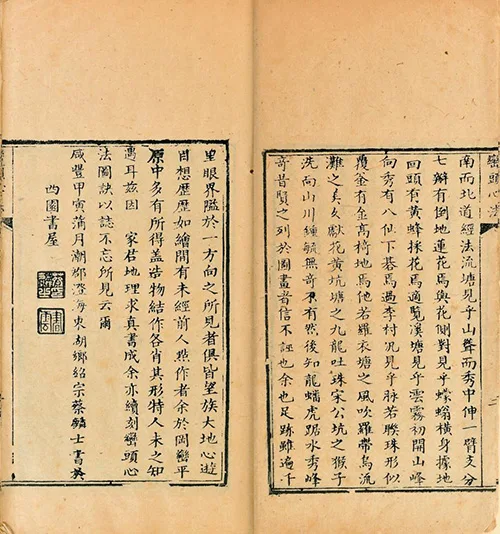 巒頭心法
南而北道經法流塘見乎山聳而秀中伸一臂支分
七瓣有倒地蓮花焉與花側對見乎螉橫身據地
回頭有黃蜂採花焉適覧溪塘見乎雲霧初開山峰
向秀有八仙下碁焉過李村況見乎脉若聯珠形似
覆釜有金髙椅地焉他若羅衣塘之風吹羅帶烏流
灘之美女獻花黃坑塘之九龍吐珠宋公坑之猴子
洗面山川鍾毓無奇不有然後知龍蟠虎踞水秀峰
奇昔賢之列於圖畫者信不誣也余也足跡雖遍于
里眼界隘於一方向之所見者俱皆望族大地心遊
目想歷歷如繪間有未經前人點作者余於岡巒平
原中多有所得蓋造物結作各肖其形特人未之知
遇耳茲因　家君地理求真書成余亦續刻巒頭心
法圖訣以誌不忘所見云爾
咸豐甲寅蒲月潮郡澄海東湖鄉紹宗蔡麟士書於
西園書屋